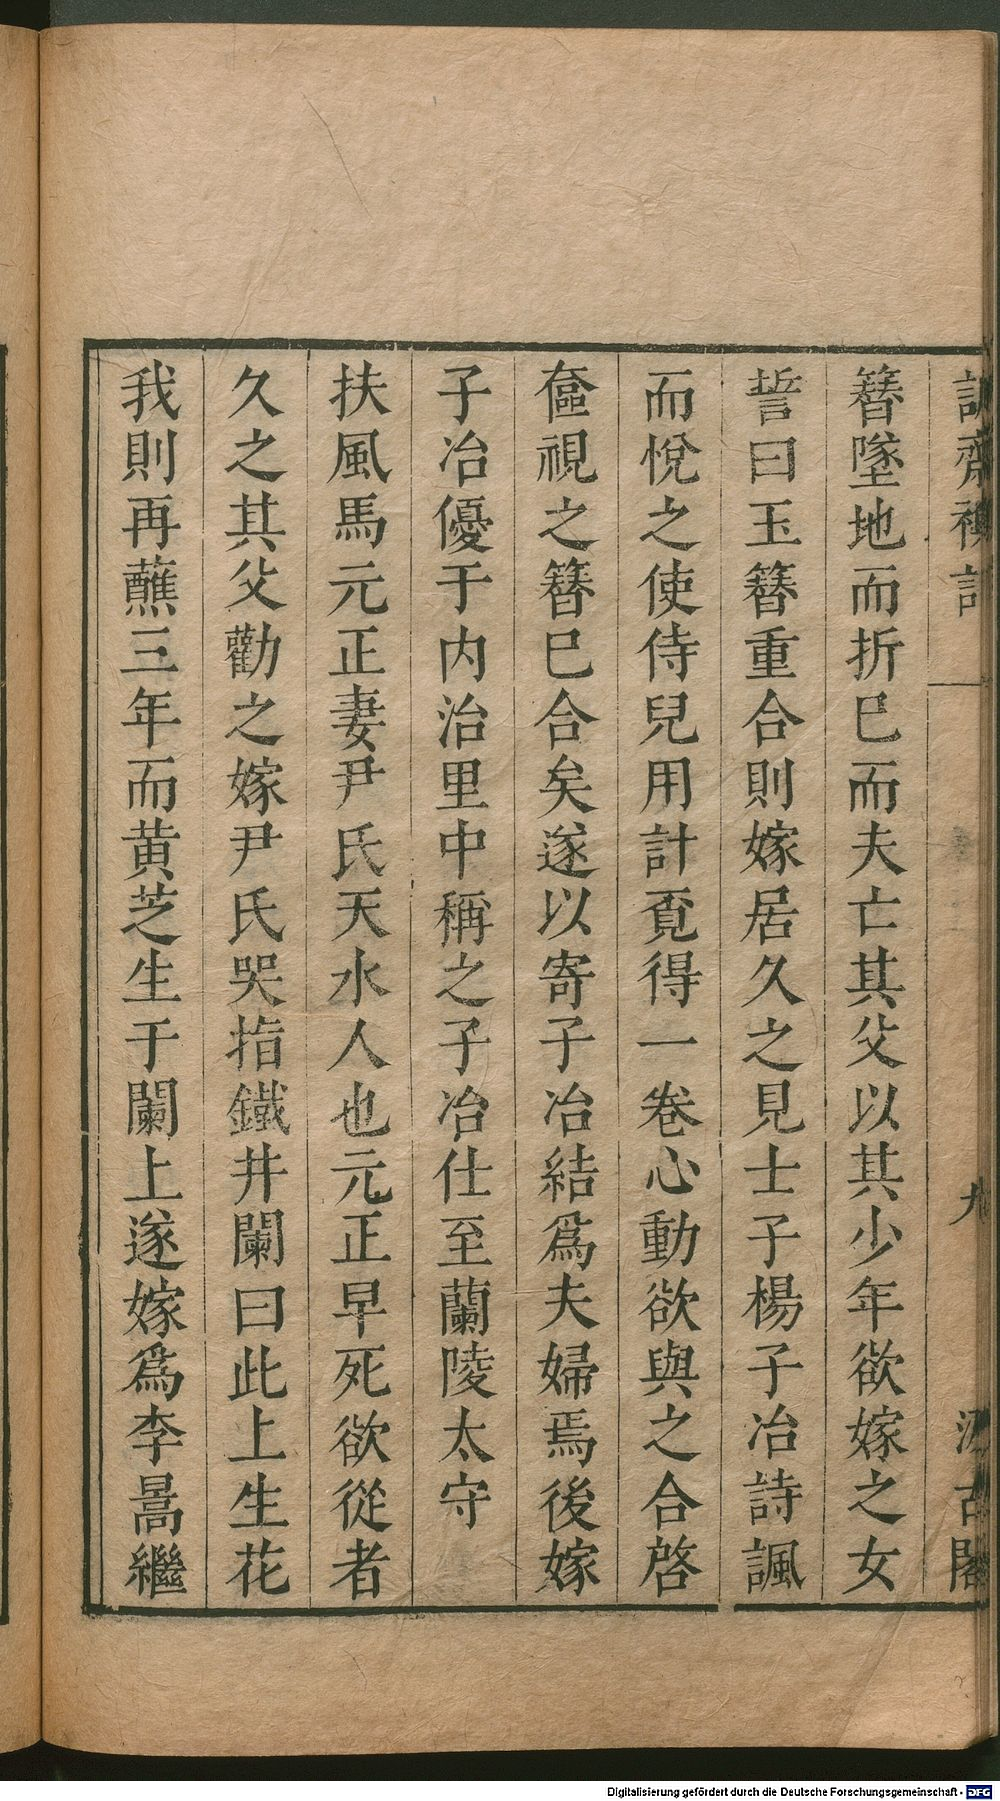 簮墜地而折巳而夫亡其父以其少年欲嫁之女
誓曰玉簮重合則嫁居久之見士子楊子冶詩諷
而悅之使侍兒用計覔得一卷心動欲與之合啓
奩視之簮巳合矣遂以寄子冶結爲夫婦焉後嫁
子冶優于内治里中稱之子冶仕至蘭陵太守
扶風馬元正妻尹氏天水人也元正早死欲從者
久之其父勸之嫁尹氏哭指鐵井闌曰此上生花
我則再蘸三年而黄芝生于闌上遂嫁爲李暠繼
九
古閣
Digitalisierung gefördert durch die Deutsche Forschungsgemeinschaft - DFG